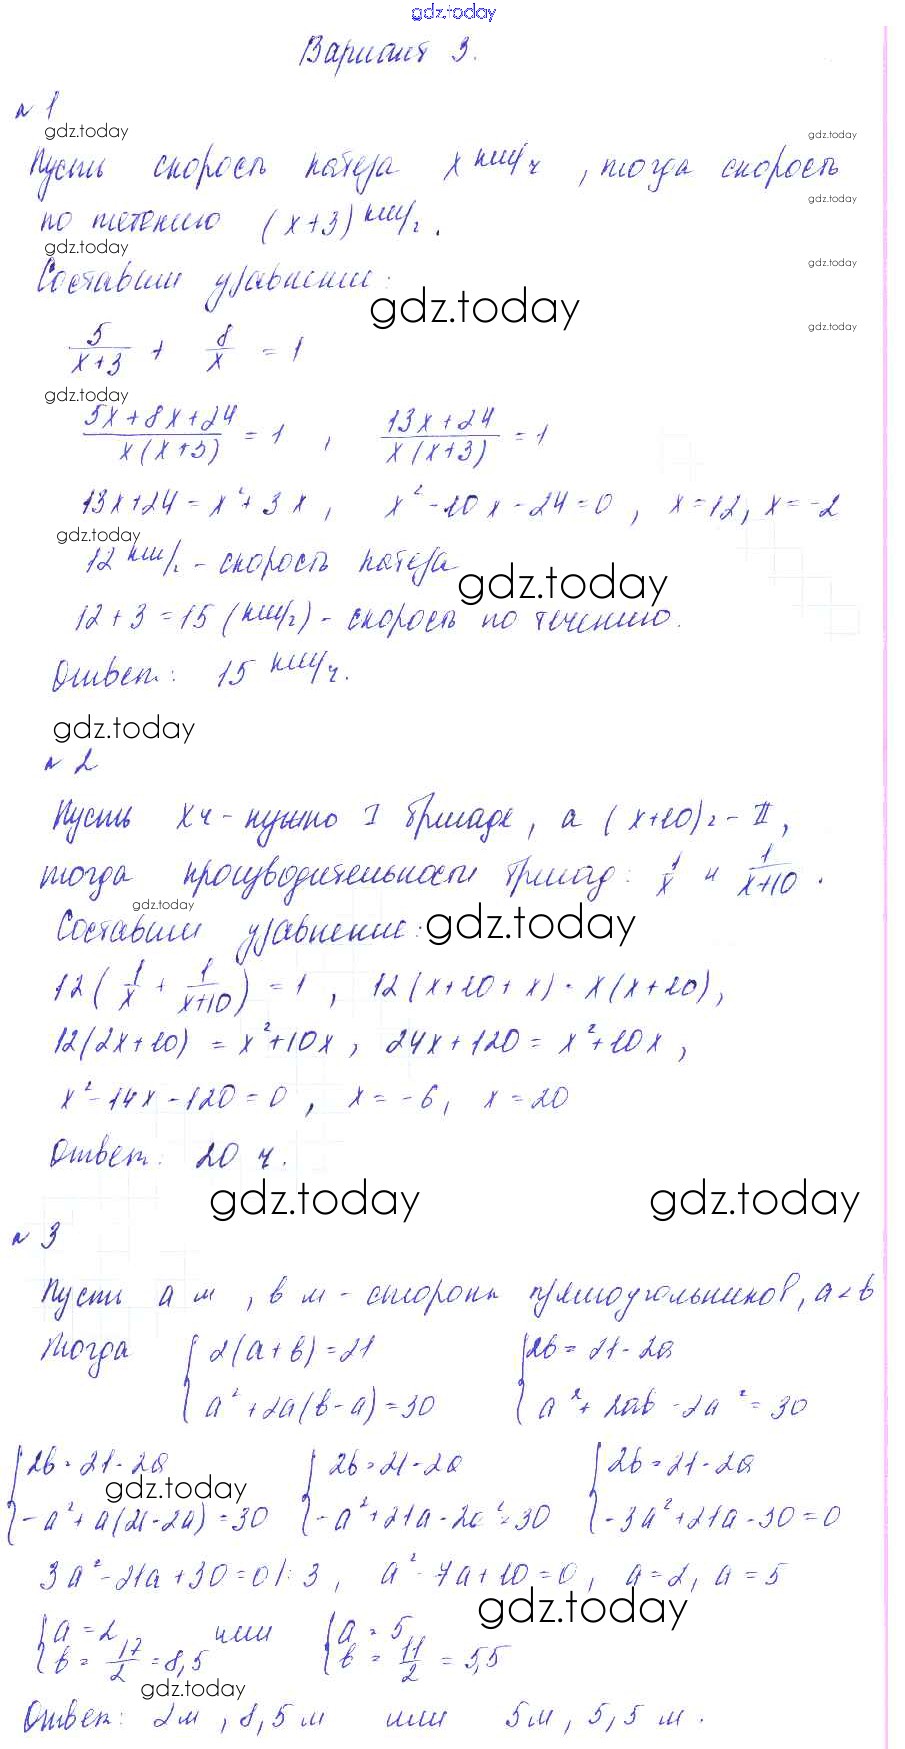 gdz.today
Вариант 3.
№ 1
gdz.today
gdz.today
Пусть скорость катера x км/ч, тогда скорость
gdz.today
по течению (x+3) км/ч.
gdz.today
Составим уравнение:
gdz.today
gdz.today
gdz.today
5/(x+3) + 8/x = 1
gdz.today
(5x+8x+24)/(x(x+3)) = 1, (13x+24)/(x(x+3)) = 1
13x+24 = x²+3x, x²-10x-24=0, x=12, x=-2
gdz.today
12 км/ч - скорость катера
gdz.today
12+3=15 (км/ч) - скорость по течению.
Ответ: 15 км/ч.
gdz.today
№ 2
Пусть x ч - нужно I бригаде, а (x+10) ч - II,
тогда производительности бригад: 1/x и 1/(x+10).
gdz.today
Составим уравнение:
gdz.today
12(1/x + 1/(x+10)) = 1, 12(x+10+x) = x(x+10),
12(2x+10) = x²+10x, 24x+120 = x²+10x,
x²-14x-120=0, x=-6, x=20
Ответ: 20 ч.
gdz.today
gdz.today
№ 3
Пусть a м, b м - стороны прямоугольников, a<b
Тогда { 2(a+b)=21 { 2b=21-2a
a²+2a(b-a)=30 a²+2ab-2a²=30
{ 2b=21-2a { 2b=21-2a { 2b=21-2a
gdz.today
-a²+a(21-2a)=30 -a²+21a-2a²=30 -3a²+21a-30=0
3a²-21a+30=0 |:3, a²-7a+10=0, a=2, a=5
gdz.today
{ a=2 или { a=5
b=17/2=8,5 b=11/2=5,5
gdz.today
Ответ: 2м, 8,5м или 5м, 5,5м.